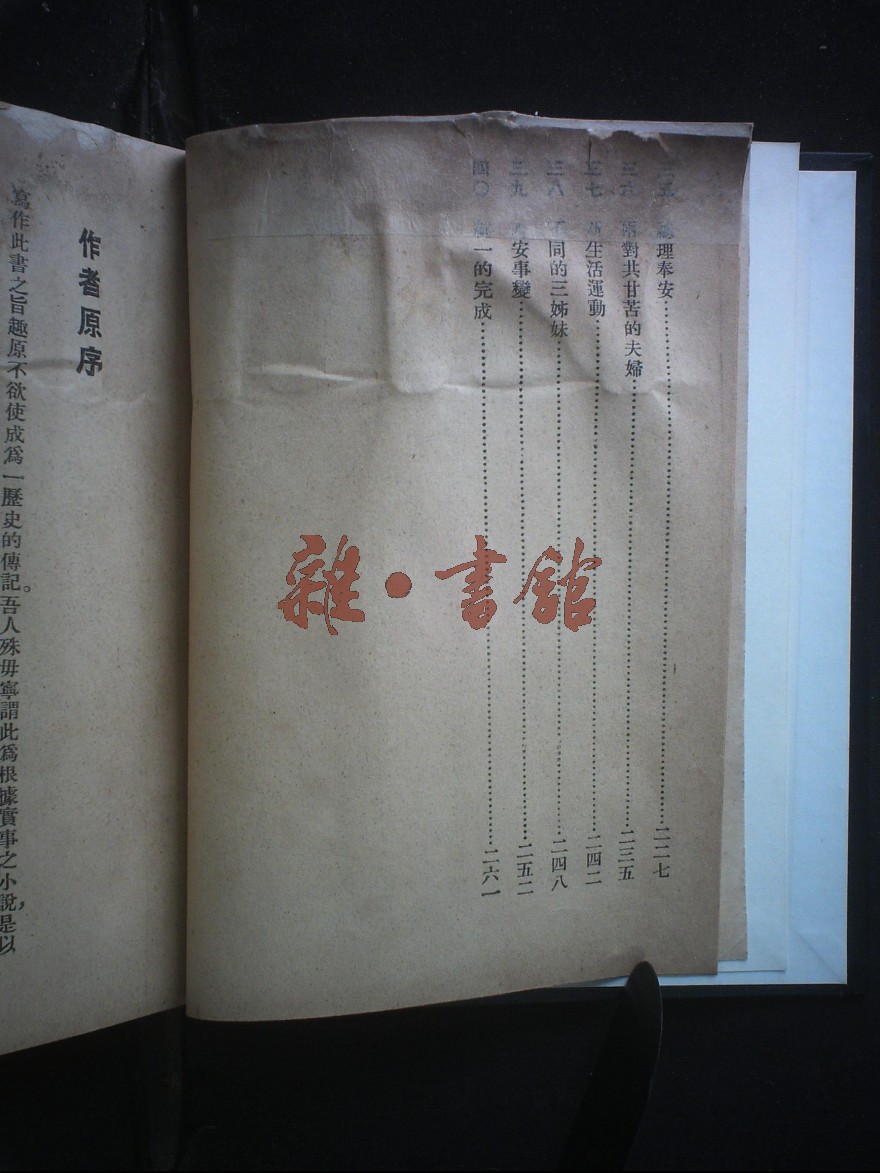 三五 總理奉安……二二七
三六 兩對共甘苦的夫婦……二三五
三七 新生活運動……二四二
三八 不同的三姊妹……二四八
三九 西安事變……二五二
四〇 統一的完成……二六一
作者原序
寫作此書之旨趣原不欲使成爲一歷史的傳記。吾人殊毋寧謂此爲根據實事之小說，是以
雜·書館